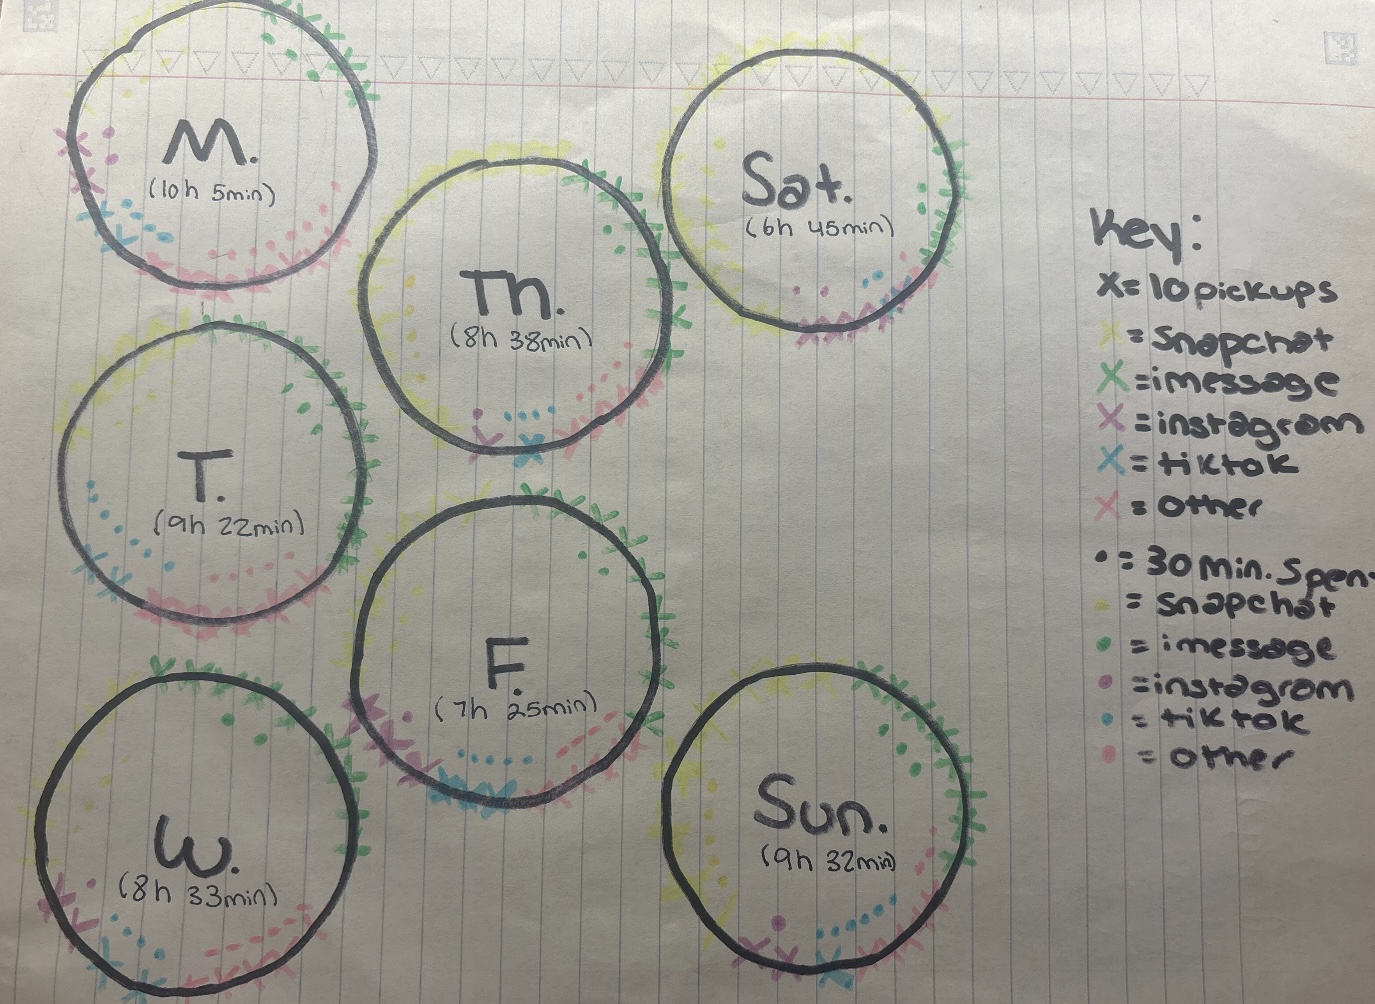 M.
(10h 5min)
Th.
(8h 38min)
Sat.
(6h 45min)
T.
(9h 22min)
F.
(7h 25min)
W.
(8h 33min)
Sun.
(9h 32min)
Key:
X=10pickups
= Snapchat
X=imessage
X=instagram
X=tiktok
X= other
•= 30 min. Spen
= snapchat
• = imessage
• =instagram
• = tiktok
• = other